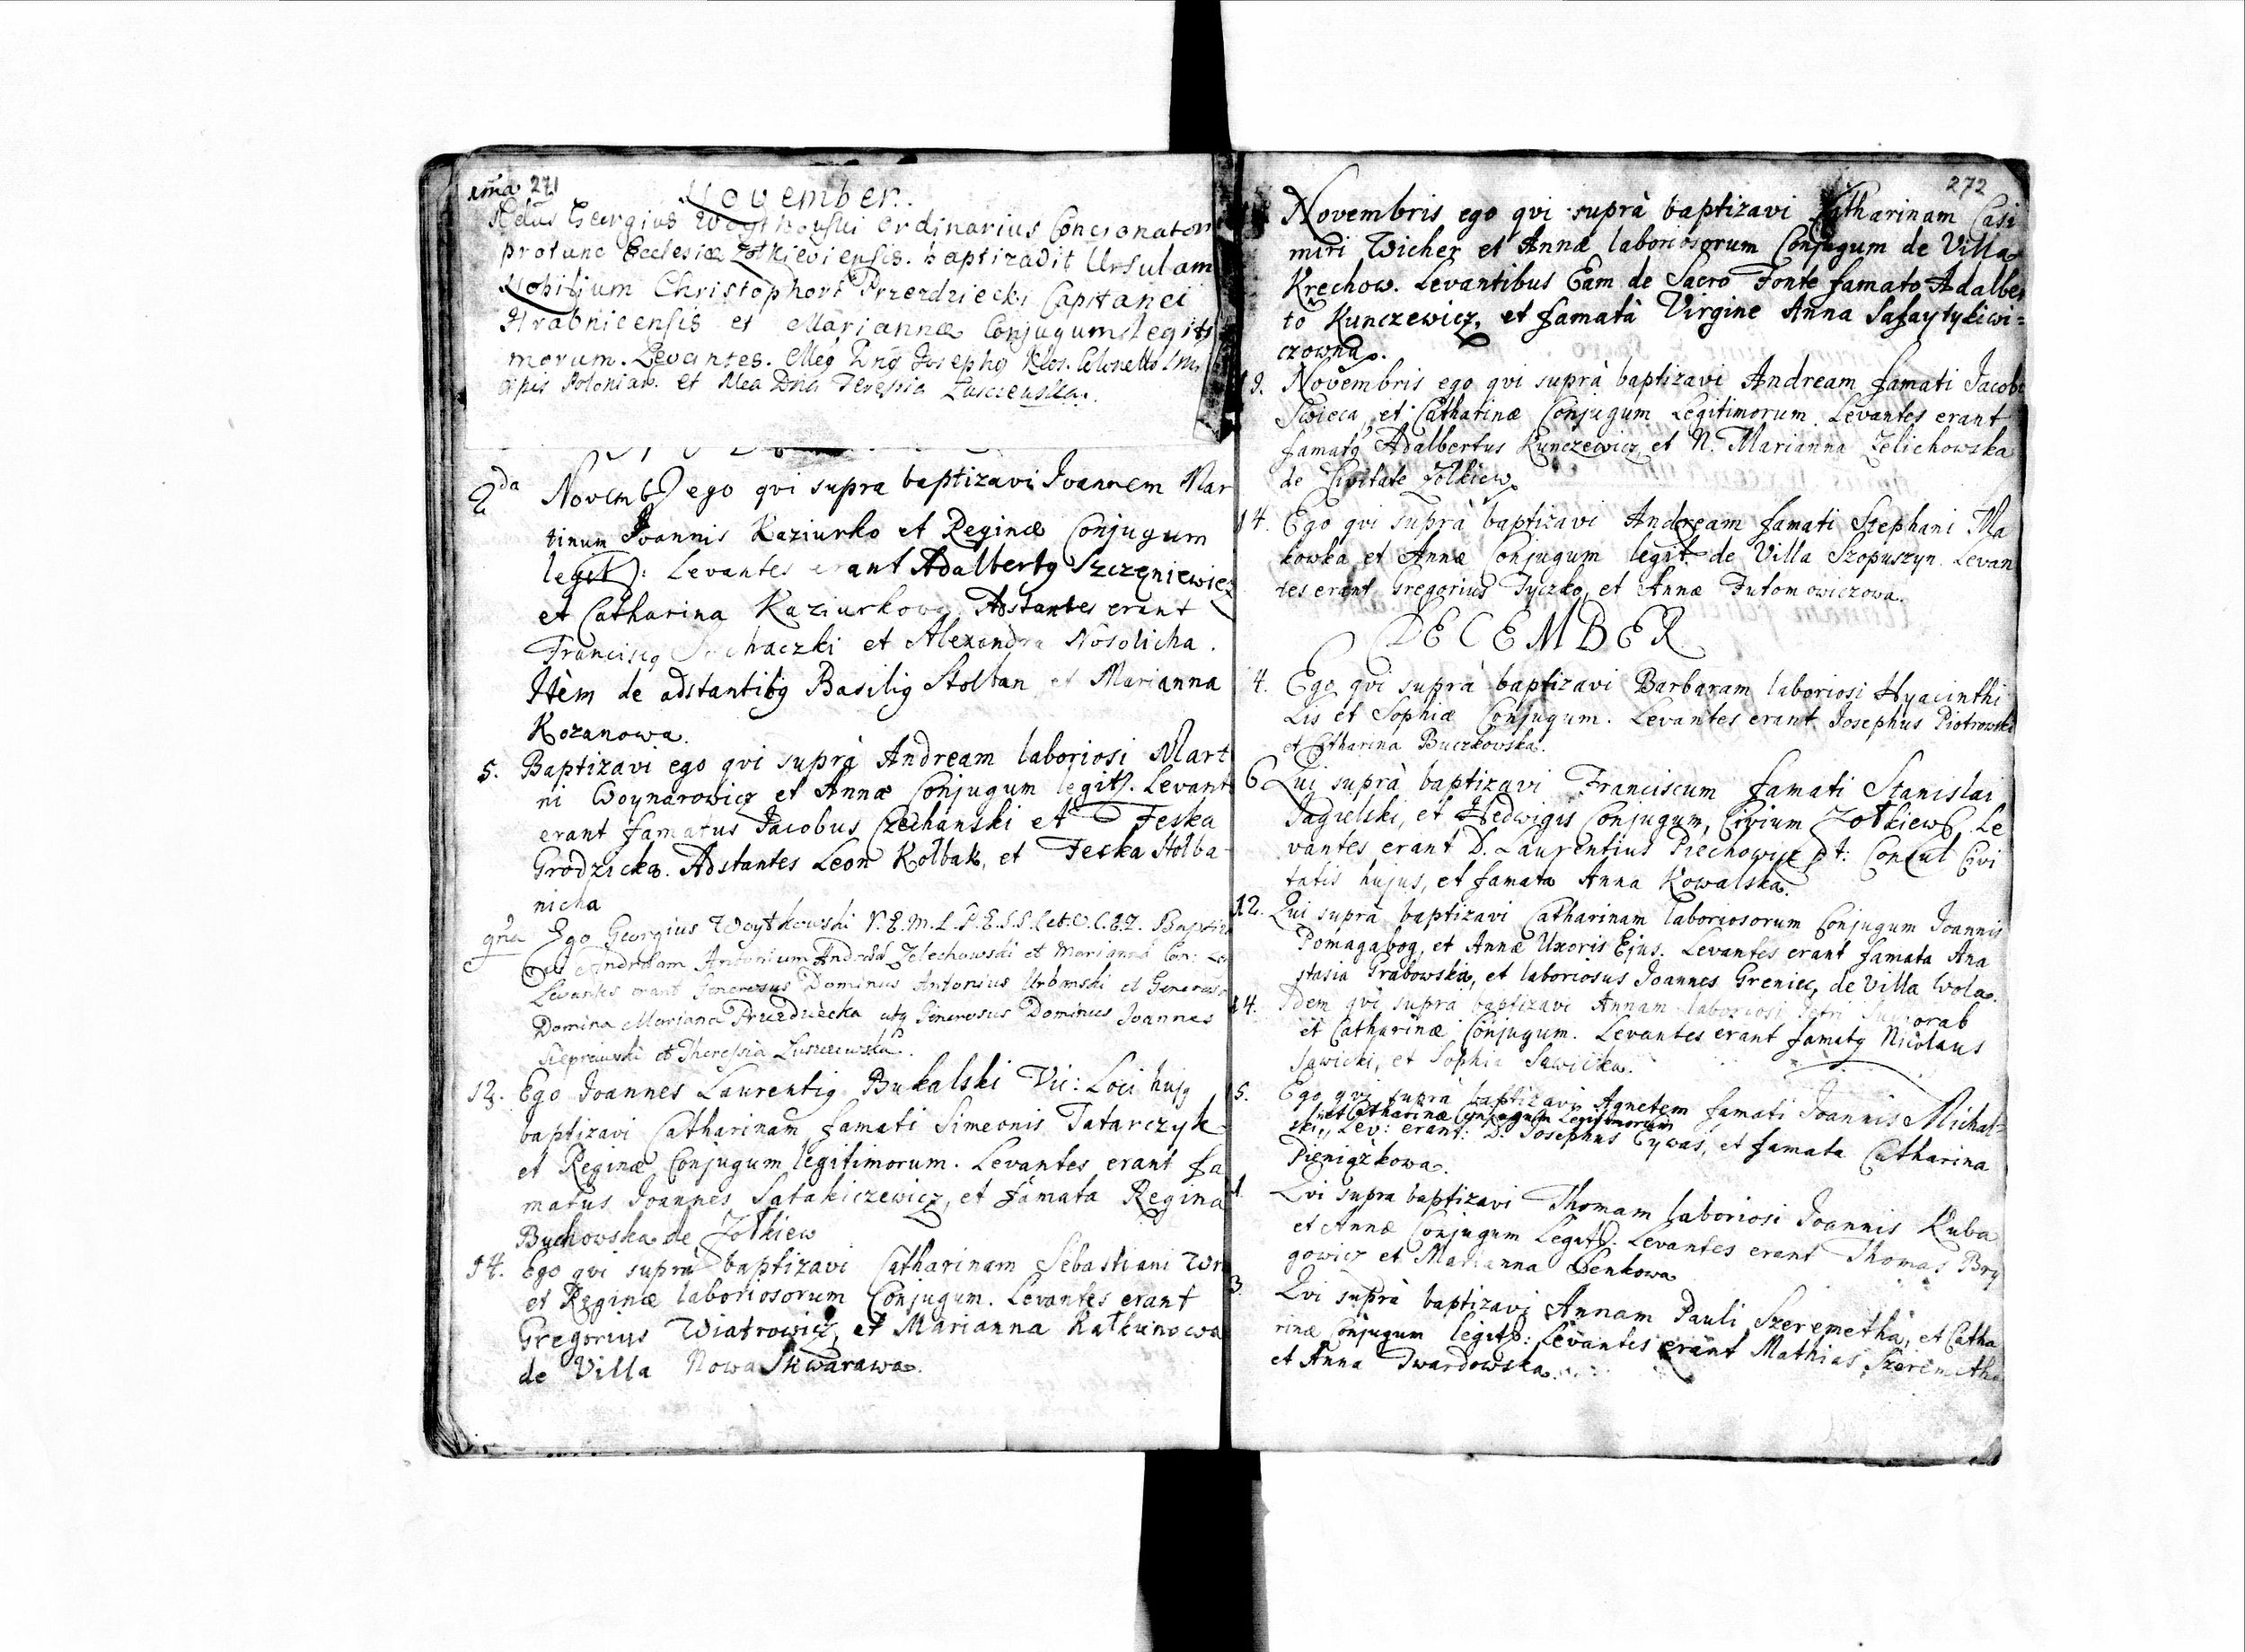 1ma 271
November.
Georgius ordinarius Concionator
protunc Ecclesiæ Zołkieviensis. baptizavit Ursulam
Nobilium Christophori Przezdziecki Capitanei
Hrabnicensis et Mariannæ Conjugum Legiti
morum. Levantes. Josephg Klos.
Poloniar. et Dna Teresia
2da Novemb ego qvi supra baptizavi Joannem Mar
tinum Joannis Kaziurko et Reginæ Conjugum
legit: Levantes erant Adalbertg Szczęniewicz
et Catharina Kaziurkowa Adstantes erant
Franciscg et Alexandra Nosolicha.
Item de adstantibg Basilig Stolban et Marianna
Kozanowa.
5. Baptizavi ego qvi suprà Andream laboriosi Mart
ni Woynarowicz et Annæ Conjugum legit. Levant
erant famatus Jacobus Czechanski et Feska
Grodzicka. Adstantes Leon Kolbak, et Feska Stolba
nicha
9na Ego Georgius Woytkowski V.E.M.L.P.E.S.S.
Andream Antonium Zelechowski et Marianna Con:
Levantes erant Generosus Dominus Antonius Urbanski et
Domina Mariana atq Generosus Dominus Joannes
et Theressia
12. Ego Joannes Laurentig Bukalski Vic: Loci hujg
baptizavi Catharinam famati Simeonis Tatarczyk
et Reginæ Conjugum legitimorum. Levantes erant fa
matus Joannes Satakiczewicz, et famata Regina
Buchowska de Zołkiew
14. Ego qvi suprà baptizavi Catharinam Sebastiani Wr
et Reginæ laboriosorum Conjugum. Levantes erant
Gregorius Wiatrowicz, et Marianna Ratkunowa
de Villa Nowa Skwarawa.
272
Novembris ego qvi suprà baptizavi Catharinam Casi
miri Wicher et Annæ laboriosorum Conjugum de Villa
Krechow. Levantibus Eam de Sacro Fonte famato Adalber
to Kunczewicz, et famatà Virgine Anna Safaytykiwi=
czowna.
19. Novembris ego qvi suprà baptizavi Andream famati Jacobi
Swieca, et Catharinæ Conjugum Legitimorum. Levantes erant
famatg Adalbertus Kunczewicz, et N. Marianna Zelichowska
de Civitate Zołkiew.
14. Ego qvi suprà baptizavi Andream famati Stephani Ma
kowka et Annæ Conjugum legit. de Villa Szopuszyn. Levan
tes erant Gregorius Tyczko, et Annæ Futomowiczowa.
DECEMBER
4. Ego qvi suprà baptizavi Barbaram laboriosi Hyacinthi
Lis et Sophiæ Conjugum. Levantes erant Josephus Piotrowski
et Catharina Buczkowska.
6 Qui suprà baptizavi Franciscum famati Stanislai
Jagielski, et Hedwigis Conjugum, Civium Zołkiew. Le
vantes erant D. Laurentius Piechowicz p. t: Consul Civi
tatis hujus, et famata Anna Kowalska.
12. Qui suprà baptizavi Catharinam laboriosorum Conjugum Joannis
Pomagabog, et Annæ Uxoris Ejus. Levantes erant famata Ana
stasia Grabowska, et laboriosus Joannes Greniec, de Villa Wola.
14. Idem qvi supra baptizavi Annam laboriosi Petri
et Catharinæ Conjugum. Levantes erant famatg Nicolaus
Sawicki, et Sophia Sawicka.
15. Ego qvi suprà baptizavi Agnetem famati Joannis Michal=
et Catharinæ Conjugum Legitimorum
ski, Lev: erant: D. Josephus Cywas, et famata Catharina
Pieniążkowa.
1 Qvi supra baptizavi Thomam laboriosi Joannis Kuba
et Annæ Conjugum Legit. Levantes erant Thomas Bry
gowicz et Marianna Senkowa
3. Qvi suprà baptizavi Annam Pauli Szeremetha, et Catha
rinæ Conjugum legit: Levantes erant Mathias Szeremetha
et Anna Twardowska.